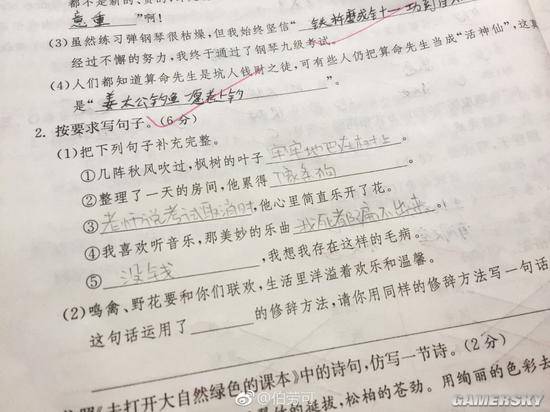 意重 "啊!
(3)虽然练习弹钢琴很枯燥,但我始终坚信"铁杵磨成针 功到自
经过不懈的努力,我终于通过了钢琴九级考试。
(4)人们都知道算命先生是坑人钱财之徒,可有些人仍把算命先生当成"活神仙",这真
是"姜太公钓鱼 愿者上钩"。
2. 按要求写句子。(6分)
(1)把下列句子补充完整。
①几阵秋风吹过,枫树的叶子牢牢地巴在树上
②整理了一天的房间,他累得像条狗
③老师说考试取消时,他心里简直乐开了花。
④我喜欢听音乐,那美妙的乐曲我死都 不出来。
⑤没钱,我想我存在这样的毛病。
(2)鸣禽、野花要和你们联欢,生活里洋溢着欢乐和温馨。
这句话运用了 的修辞方法,请你用同样的修辞方法写一句话
《去打开大自然绿色的课本》中的诗句,仿写一节诗。(2分)
的挺拔,松柏的苍劲。用绚丽的色彩去
@伯劳可
GAMERSKY